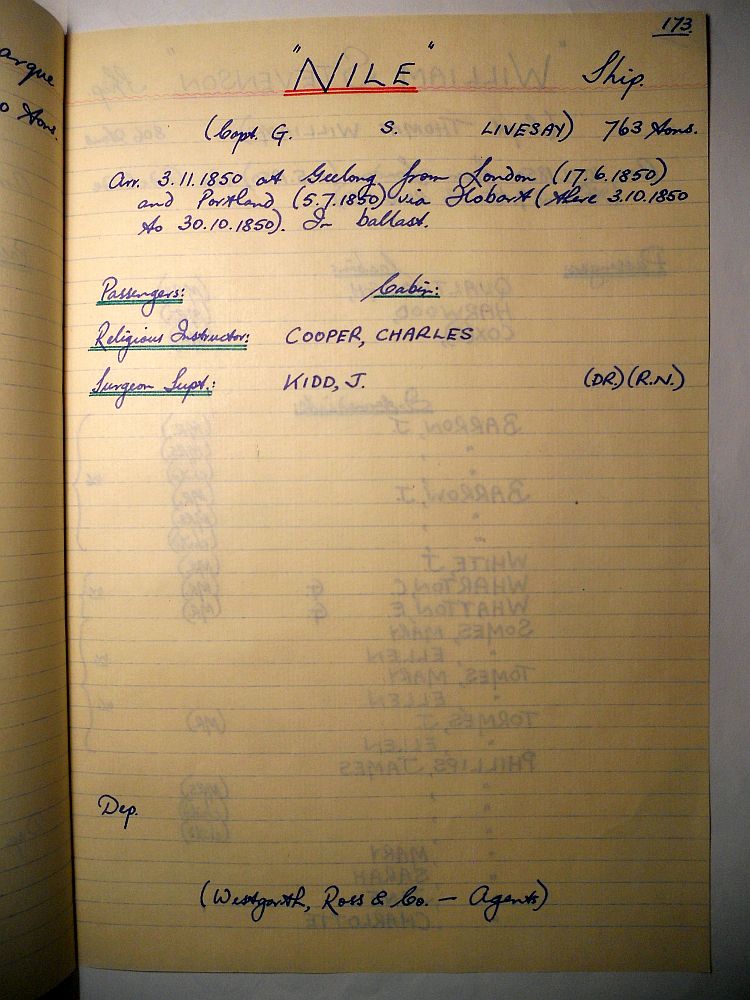 173
"NILE" Ship.
(Capt. G. S. LIVESAY) 763 tons.
Arr. 3.11.1850 at Geelong from London (17.6.1850)
and Portland (5.7.1850) via Hobart (there 3.10.1850
to 30.10.1850). In ballast.
Passengers: Cabin:
Religious Instructor: COOPER, CHARLES
Surgeon Supt.: KIDD, J. (DR.) (R.N.)
Dep.
(Westgarth, Ross & Co. — Agents)